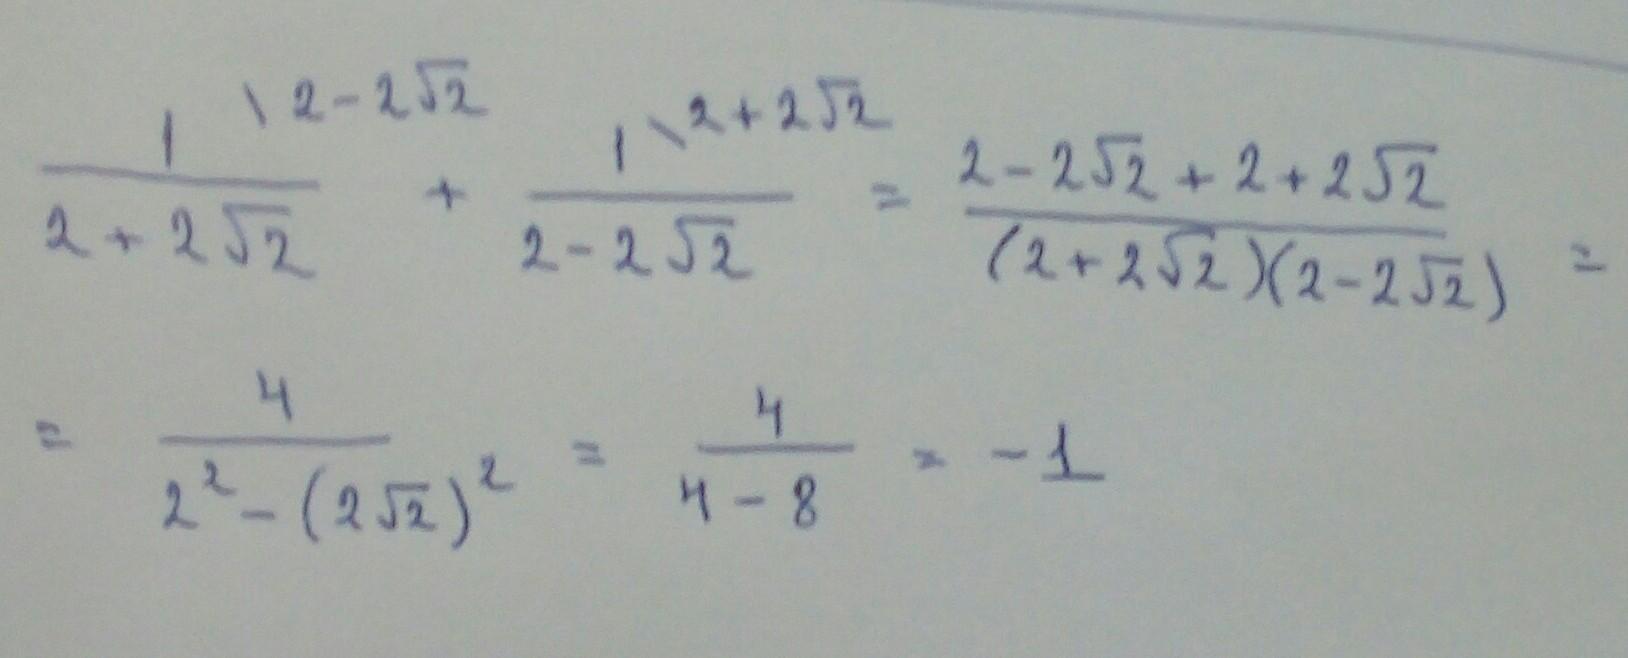 1\2-2√2/(2+2√2) + 1\2+2√2/(2-2√2) = (2-2√2+2+2√2)/((2+2√2)(2-2√2)) =
= 4/(2²-(2√2)²) = 4/(4-8) = -1